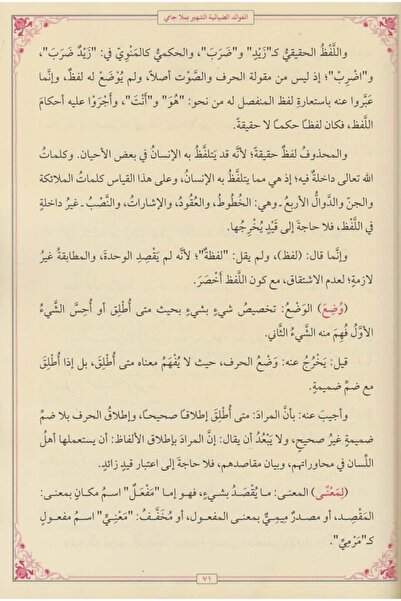 الفوائد الضيائية الشهير بملا جامي
واللَّفْظُ الحقيقيُّ كـ"زَيْدٍ" و"ضَرَبَ"، والحكميُّ كالمَنْوِيّ في: "زَيْدٌ ضَرَبَ"،
و"اضْرِبْ"؛ إذ ليس من مقولة الحرف والصَّوْت أصلًا، ولم يُوْضَعْ له لفظٌ، وإنَّما
عَبَّروا عنه باستعارةِ لفظ المنفصل له من نحو: "هُوَ" و"أَنْتَ"، وأَجْرَوْا عليه أحكامَ
اللَّفظ، فكان لفظًا حكمًا لا حقيقةً.
والمحذوفُ لفظٌ حقيقةً؛ لأنَّه قد يَتلفَّظُ به الإنسانُ في بعض الأحيان. وكلماتُ
الله تعالى داخلةٌ فيه؛ إذ هي مما يتلفَّظُ به الإنسانُ، وعلى هذا القياس كلماتُ الملائكة
والجنّ والدَّوالُّ الأربعُ ـ وهي: الخُطُوطُ، والعُقُودُ، والإشاراتُ، والنُّصُبُ ـ غيرُ داخلةٍ
في اللَّفْظ، فلا حاجةَ إلى قَيْدٍ يُخْرِجُها.
وإنَّما قال: (لفظ)، ولم يقل: "لفظةٌ"؛ لأنَّه لم يَقْصِدِ الوحدةَ، والمطابقةُ غيرُ
لازمةٍ؛ لعدم الاشتقاق، مع كون اللَّفظ أَخْصَرَ.
(وُضِعَ) الوَضْعُ: تخصيصُ شيءٍ بشيءٍ بحيث متى أُطْلِق أو أُحِسَّ الشَّيءُ
الأوَّلُ فُهِمَ منه الشَّيءُ الثَّاني.
قيل: يَخْرُجُ عنه: وَضْعُ الحرف، حيث لا يُفْهَمُ معناه متى أُطْلِقَ، بل إذا أُطْلِقَ
مع ضمِّ ضميمةٍ.
وأجيبَ عنه: بأنَّ المرادَ: متى أُطْلِقَ إطلاقًا صحيحًا، وإطلاقُ الحرف بلا ضمِّ
ضميمةٍ غيرُ صحيحٍ، ولا يَبْعُدُ أن يقال: إنَّ المرادَ بإطلاق الألفاظ: أن يستعملها أهلُ
اللِّسان في محاوراتهم، وبيان مقاصدهم، فلا حاجةَ إلى اعتبار قيدٍ زائدٍ.
(لِمَعْنًى) المعنى: ما يُقْصَدُ بشيءٍ، فهو إما "مَفْعَلٌ" اسمُ مكانٍ بمعنى:
المَقْصِد، أو مصدرٌ مِيميٌّ بمعنى المفعول، أو مُخَفَّفُ: "مَعْنِيٍّ" اسم مفعولٍ
كـ"مَرْمِيٍّ".
٧١